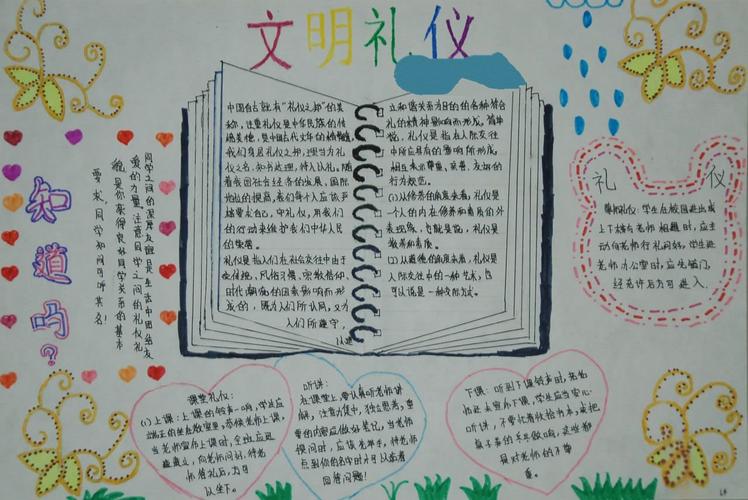 文明礼仪
中国自古就有"礼仪之邦"的美
称,注重礼仪是中华民族的传
统美德,是中国古代文明的精髓
我们身居礼仪之邦,理当为礼
仪之名,知书达理,待人以礼。随
着我国社会经济的发展,国际
地位的提高,我们每个人应该严
格要求自己,守礼仪,用我们
的行动来维护我们中华人民
的尊严。
礼仪是指人们在社会交往中由于
受传统,风俗习惯,宗教信仰
时代潮流的因素影响而形
成的,既为人们所认同,又为
人们所遵守,
以建
立和谐关系为目的的各种符合
礼的精神影响而形成。简单
说,礼仪是指在人际交往
中所应具有的影响所形成
相互表示尊重、亲善、友好的
行为规范。
(1)从修养的角度来看,礼仪是
一个人的内在修养和素质的外
表现形式,也就是说,礼仪是
教养和素质。
(2)从道德的角度来看,礼仪是
人际交往中的一种艺术,也
可以说是一种交际方式。
知道吗?
同学之间的深厚友谊是生活中团结友
爱的力量注意同学之间的礼仪礼
貌是你获得良好同学关系的基本
要求,同学知间可呼其名!
礼仪
尊师礼仪:学生在校园进出或
上下楼与老师相遇时,应主
动向老师行礼问好,学生进
老师办公室时,应先敲门,
经允许后方可进入.
课堂礼仪:
(1)上课:上课的铃声一响,学生应
端正的坐在教室里,恭候老师上课,
当老师宣布上课时,全班应迅
速肃立,向老师问好,待老
师答礼后,方可
以坐下。
听讲:
在课堂上,要认真听老师讲
解,注意力集中,独立思考,重
要的内容应做好笔记,当老师
提问时,应该先举手,待老师
点到你的名字时才可以站着
回答问题!
下课:听到下课铃声时,若老
师还未宣布下课,学生应当安心
听讲,不要忙着收拾书本,或把
桌子弄的乒乓做响,这些都
是对老师的不尊
重。